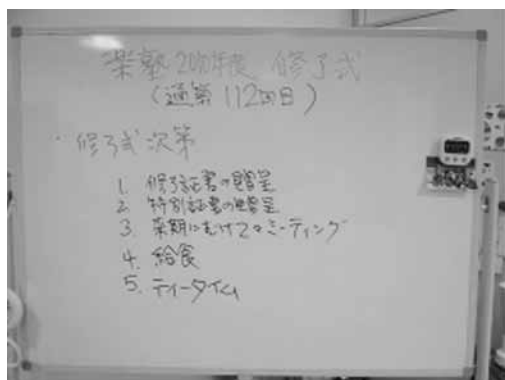 楽塾2010年度 修了式
(通算112回目)
・修了式次第
1. 修了証書の贈呈
2. 特別証書の贈呈
3. 来期にむけてのミーティング
4. 給食
5. ティータイム